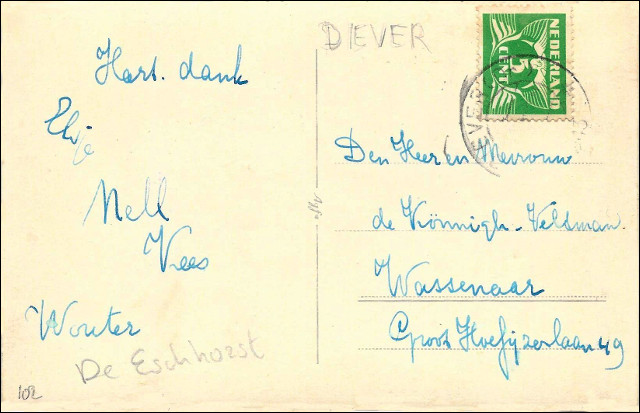 DIEVER
NEDERLAND
5
CENT
EVER
Hart. dank
Elsje
Nell
Kees
Wouter
De Eschhorst
102
Den Heer en Mevrouw
de Könnigh-Veldsman.
Wassenaar
Groot Hoefijzerlaan 49